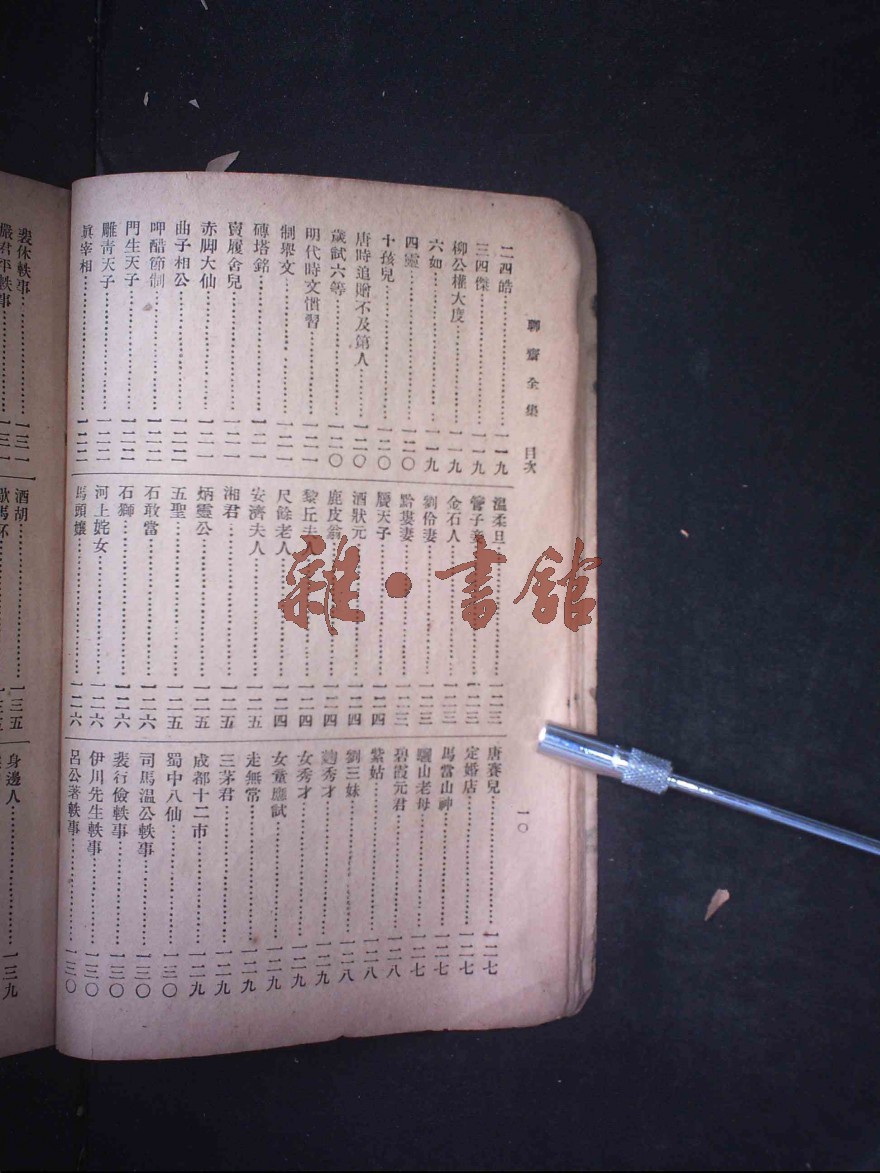 聊齋全集 目次
二四皓……一一九
三四傑……一一九
柳公權大度……一一九
六如……一一九
四靈……一二〇
十孩兒……一二〇
唐時追贈不及第人……一二〇
歲試六等……一二〇
明代時文慣習……一二一
制舉文……一二一
磚塔銘……一二一
賣履舍兒……一二一
赤脚大仙……一二一
曲子相公……一二二
呷醋節制……一二二
門生天子……一二二
雕靑天子……一二二
眞宰相……一二二
溫柔旦……一二三
管子妾……一二三
金石人……一二三
劉伶妻……一二三
黔婁妻……一二三
天子……一二四
酒狀元……一二四
鹿皮翁……一二四
黎丘夫人……一二四
尺餘老人……一二四
安濟夫人……一二五
湘君……一二五
炳靈公……一二五
五聖……一二五
石敢當……一二六
石獅……一二六
河上姹女……一二六
馬頭孃……一二六
唐賽兒……一二七
定婚店……一二七
馬當山神……一二七
驪山老母……一二七
碧霞元君……一二八
紫姑……一二八
劉三妹……一二八
麴秀才……一二九
女秀才……一二九
女童應試……一二九
走無常……一二九
三茅君……一二九
成都十二市……一二九
蜀中八仙……一三〇
司馬溫公軼事……一三〇
裴行儉軼事……一三〇
伊川先生軼事……一三〇
呂公著軼事……一三〇
一〇
裴休軼事……一三一
嚴君平軼事……一三一
酒胡……一三五
身邊人……一三九
雜·書館